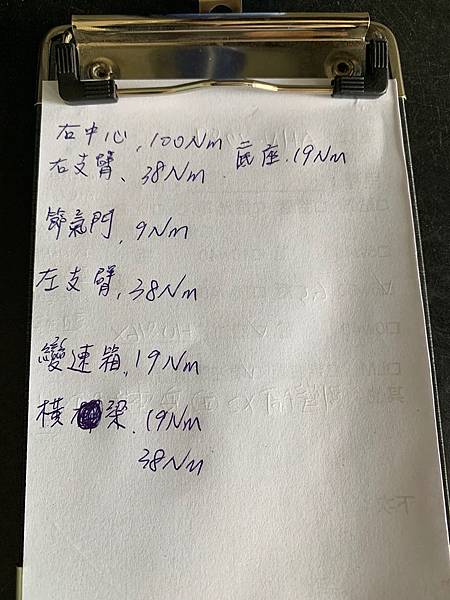 右中心,100Nm
右支臂、38Nm. 底座.19Nm
節氣門,9Nm
左支臂,38Nm
變速箱,19Nm
橫梁.19Nm
38Nm